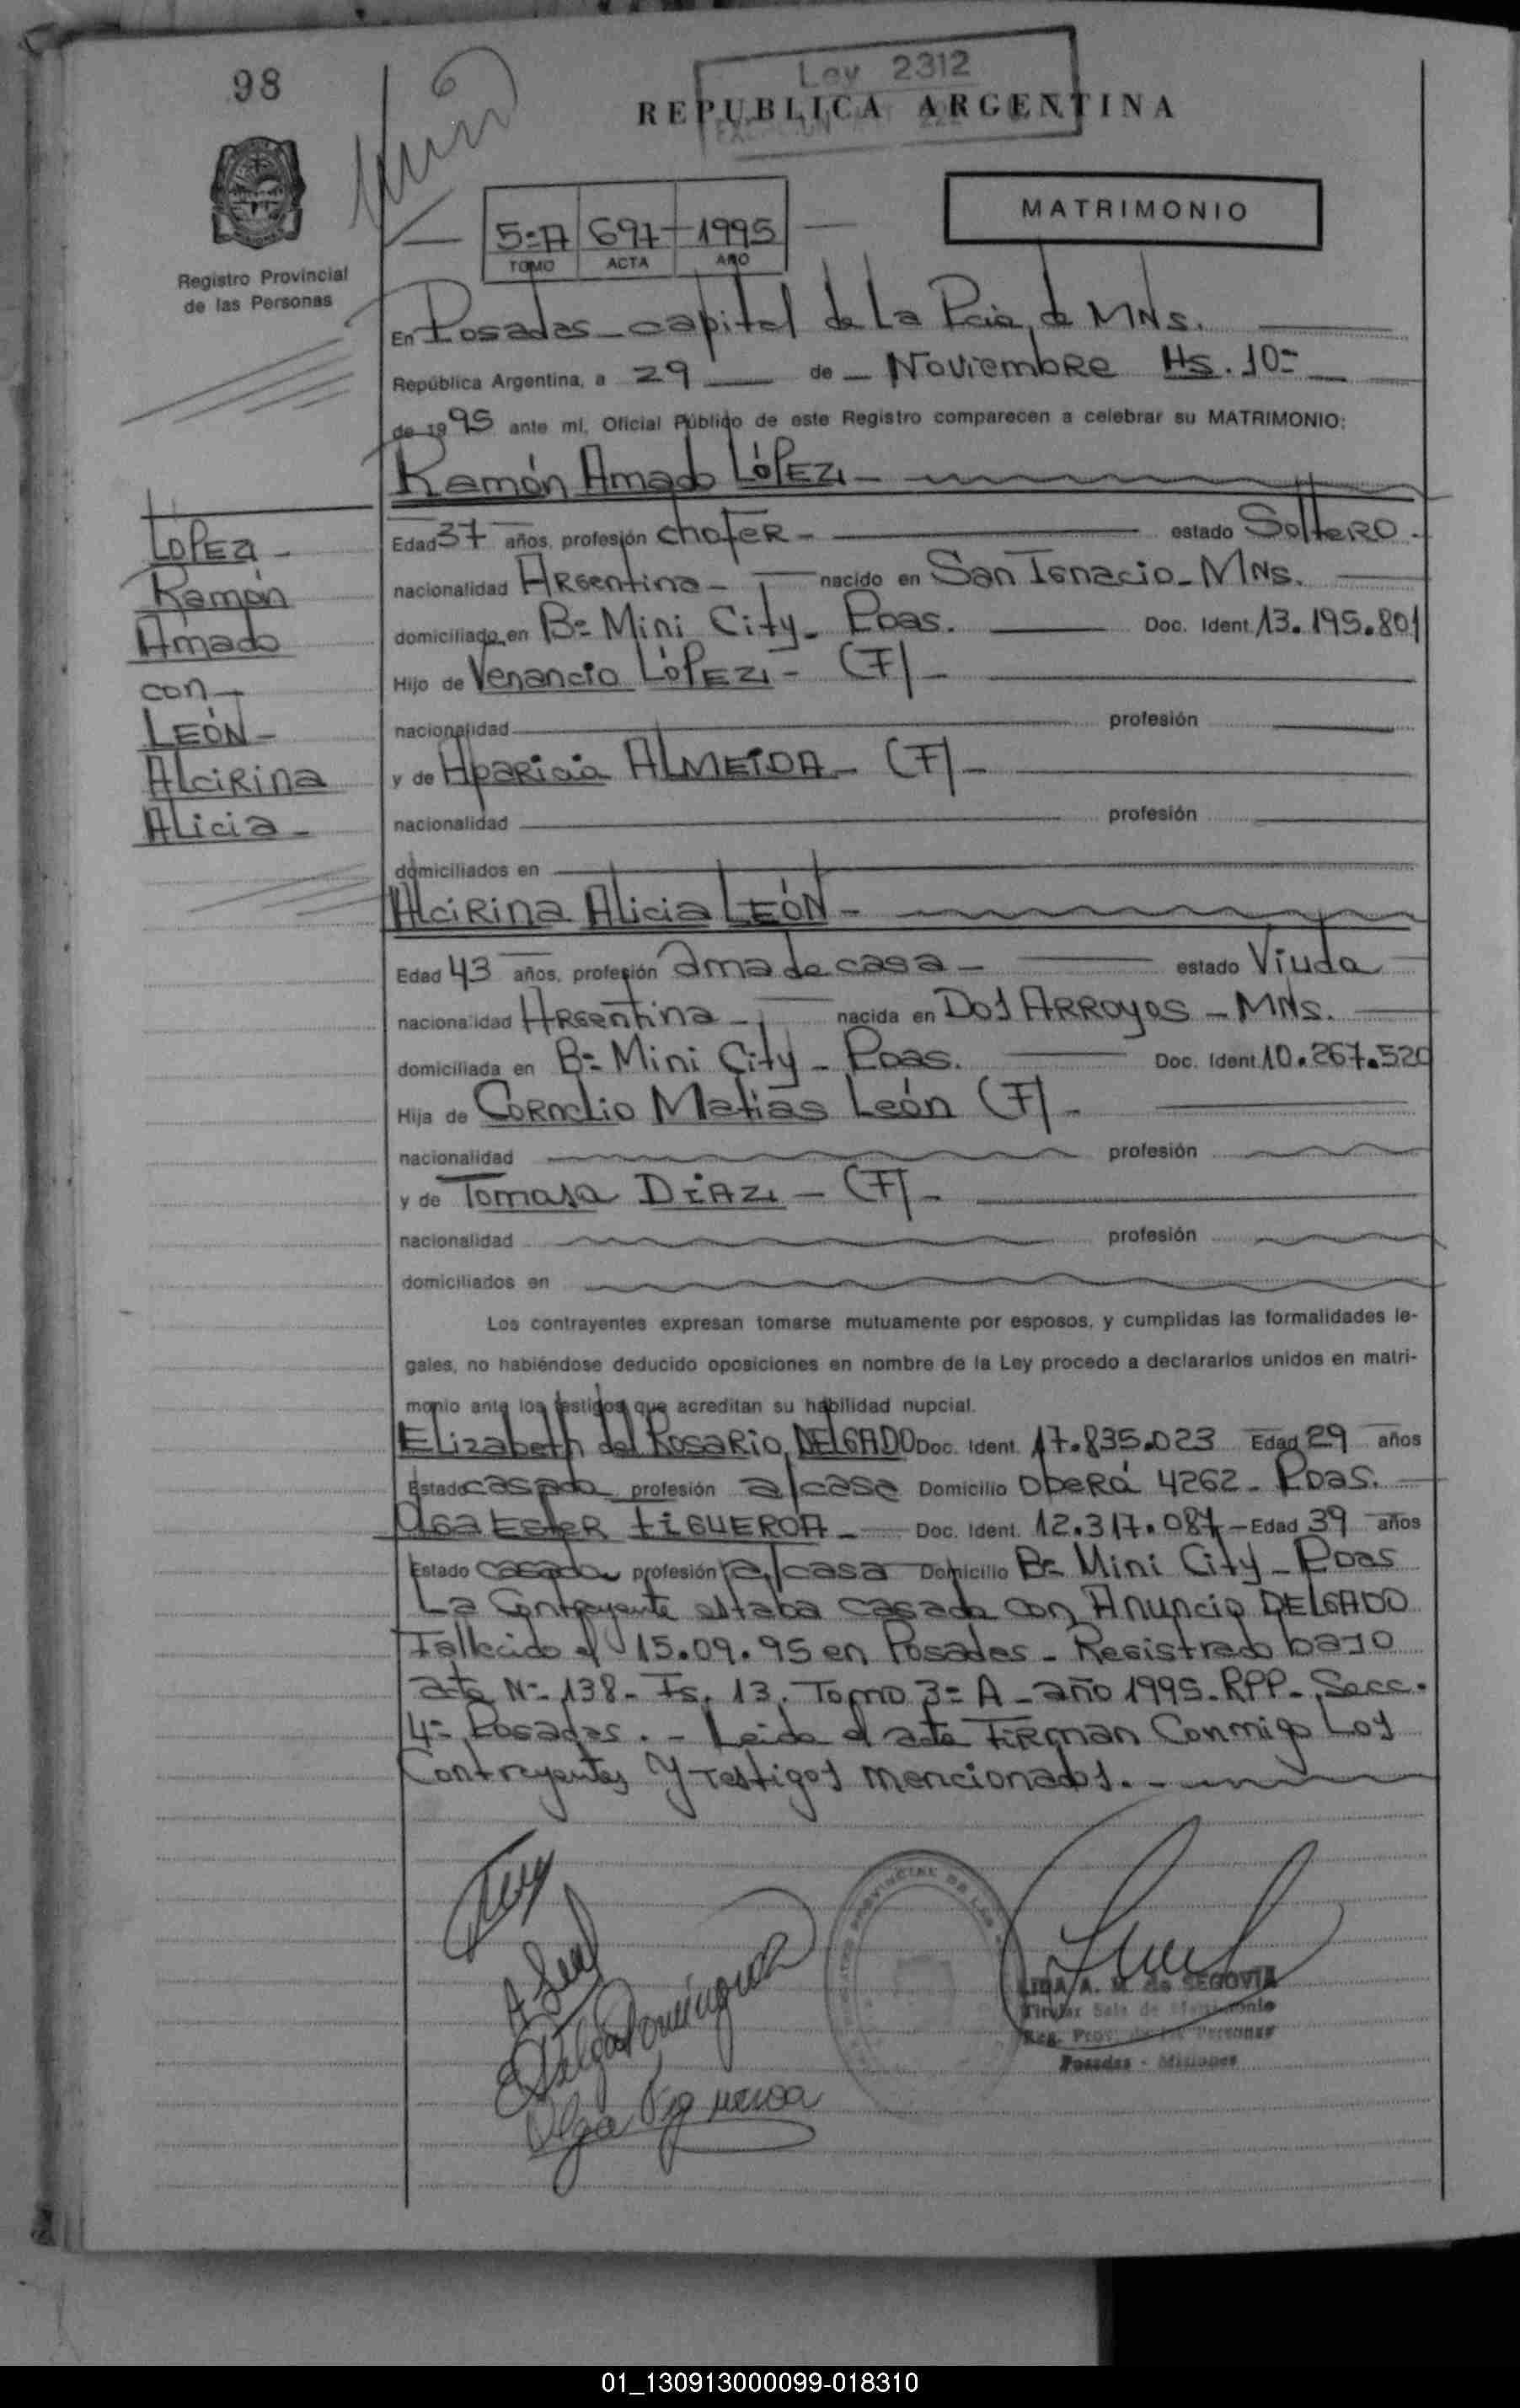 98
Ley 2312
REPUBLICA ARGENTINA
MATRIMONIO
5=A 697 1995
TOMO ACTA AÑO
Registro Provincial
de las Personas
En Posadas - capital de La Pcia, de MNs.
República Argentina, a 29 de - Noviembre Hs. 10=
de 1995 ante mí, Oficial Público de este Registro comparecen a celebrar su MATRIMONIO:
Ramón Amado LÓPEZ -
LOPEZ -
Ramón
Amado
con -
LEÓN -
Alcirina
Alicia -
Edad 37 años, profesión chofer - estado Soltero -
nacionalidad Argentina - nacido en San Ignacio - MNs.
domiciliado en B= Mini City - Poas. Doc. Ident. 13.195.801
Hijo de Venancio LÓPEZ - (F) -
nacionalidad profesión
y de Aparicia ALMEIDA - (F) -
nacionalidad profesión
domiciliados en
Alcirina Alicia LEÓN -
Edad 43 años, profesión ama de casa - estado Viuda
nacionalidad Argentina - nacida en Dos Arroyos - MNs.
domiciliada en B= Mini City - Poas. Doc. Ident. 10.267.520
Hija de Cornelio Matías León (F) -
nacionalidad profesión
y de Tomasa DÍAZ - (F) -
nacionalidad profesión
domiciliados en
Los contrayentes expresan tomarse mutuamente por esposos, y cumplidas las formalidades le-
gales, no habiéndose deducido oposiciones en nombre de la Ley procedo a declararlos unidos en matri-
monio ante los testigos que acreditan su habilidad nupcial.
Elizabeth del Rosario DELGADO Doc. Ident. 17.835.023 Edad 29 años
Estado casada profesión a/casa Domicilio Oberá 4262 - Poas.
Olga Ester FIGUEROA - Doc. Ident. 12.317.087 - Edad 39 años
Estado casada profesión a/casa Domicilio B= Mini City - Poas
La Contrayente estaba casada con Anuncio DELGADO
Fallecido el 15.09.95 en Posadas - Registrado bajo
acta N= 138 - Fs. 13. Tomo 3= A - año 1995 - RPP - Secc.
4= Posadas. - Leida el acta Firman Conmigo Los
Contrayentes y testigos mencionados. -
LIDA A. M. de SEGOVIA
Titular Sala de Matrimonio
Reg. Prov. de las Personas
Posadas - Misiones
Olga Figueroa
01_130913000099-018310